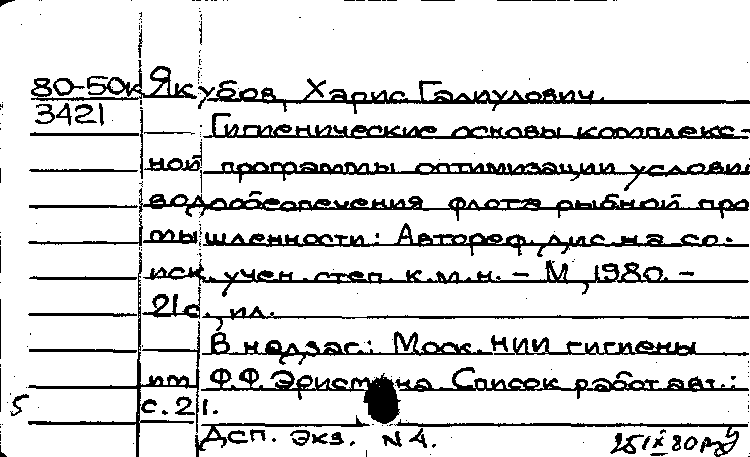 80-50к Якубов, Харис Галиулович.
3421
Гигиенические основы комплекс-
ной программы оптимизации условий
водообеспечения флота рыбной про
мышленности: Автореф. дис. на со-
иск. учен. степ. к.м.н. - М, 1980. -
21с., ил.
В надзаг.: Моск. НИИ гигиены
им Ф.Ф. Эрисмана. Список работ авт.:
5 с. 21.
Дсп. экз. N4.
25 IX 80